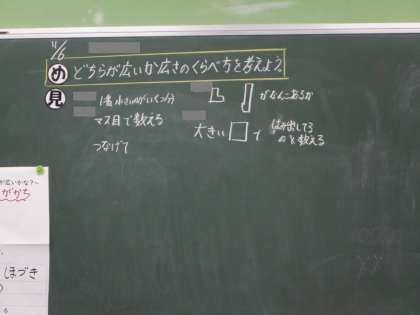 11/6
め どちらが広いか広さのくらべ方を考えよう。
見 1番小さいのがいくつ分
マス目で数える
つなげて
がなんこあるか
大きい□で
はみ出してる
のを数える
広いかな?~
がかち
ほづき